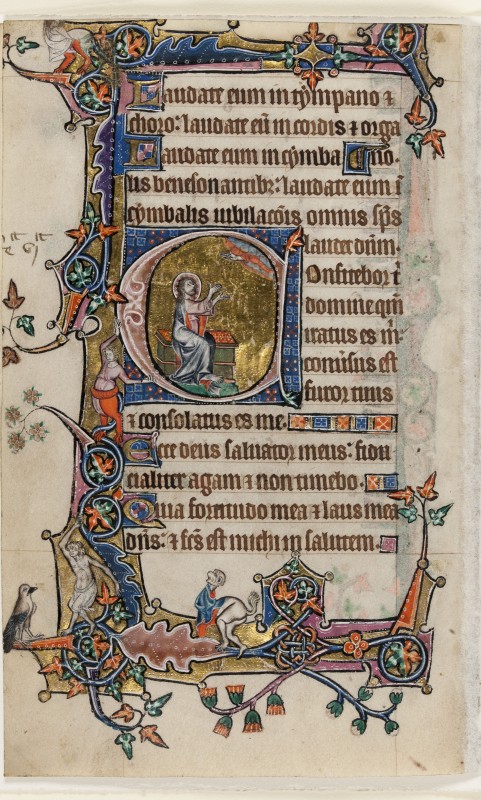 Laudate eum in tympano ⁊
choro: laudate eū in cordis ⁊ orga
Laudate eum in cymba no.
lis benesonantibꝫ: laudate eum ī
cymbalis iubilacōis omnis sp̄s
laudet dn̄m.
Confitebor t̄
domine qm̄
iratus es m̄.
conūsus est
furor tuus
⁊ consolatus es me.
Ecce deus saluator meus: fidu
cialiter agam ⁊ non timebo.
Quia fortitudo mea ⁊ laus mea
dn̄s: ⁊ fc̄s est michi in salutem.